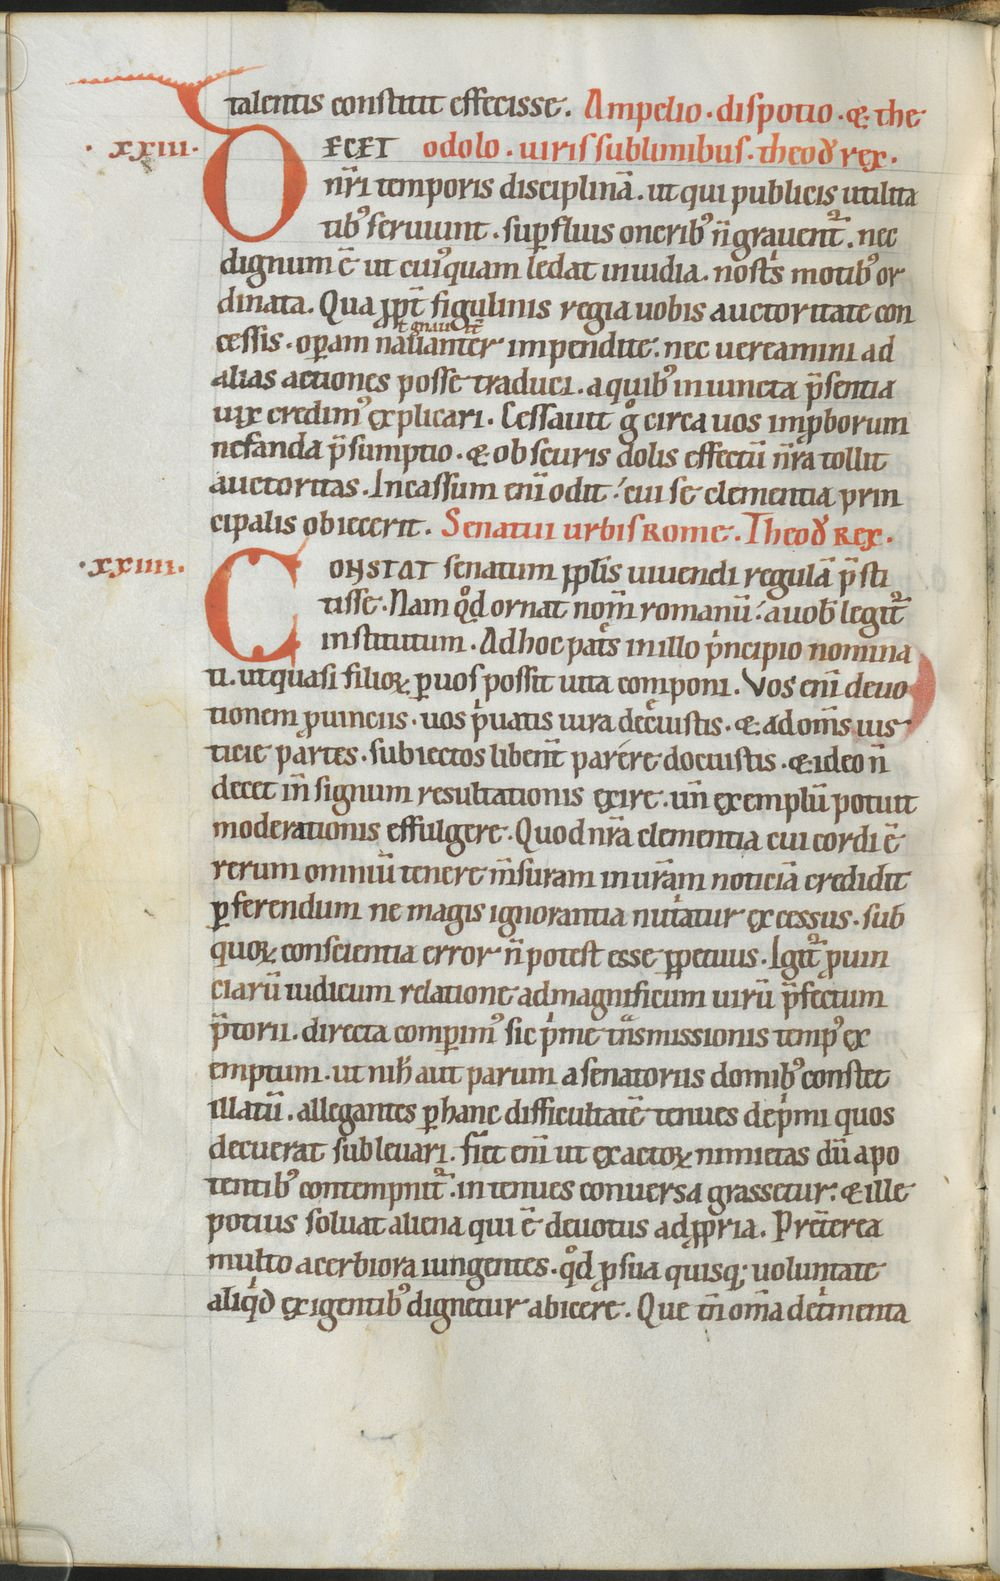 talentis constitit effecisse. Ampelio · dispotio · & the
· xxiii · DECET odolo · uiris sublimibus · theod̄ rex ·
nr̄i temporis disciplinā . ut qui publicis utilita
tibꝰ seruiunt . suꝑfluis oneribꝰ n̄ grauent᷑ . nec
dignum ē ut cuiꝰquam ledat inuidia . nost̄s motibꝰ or
dinata. Qua ꝓpt̄ figulinis regia uobis auctoritate con
ł gnauit̄
cessis · oꝑam nauanter impendite . nec uereamini ad
alias actiones posse traduci . a quibꝰ iniuncta p̄sentia
uix credimꝰ explicari . Cessauit gͦ circa uos imꝓborum
nefanda p̄sumptio · & obscuris dolis effectū nr̄a tollit
auctoritas . Incassum eni͞ odit ꝰ cui se clementia prin
cipalis obiecerit . Senatui urbis Rome . Theod̄ Rex .
· xxiiii · CONSTAT senatum ꝓpl̄is uiuendi regulā p̄sti
tisse . Nam qͦd ornat nom̄ romanū ꝰ a uob̄ legit᷑
institutum . Ad hoc pat̄s in illo pͥncipio nomina
ti . ut quasi filioꝝ ꝑ uos possit uita componi . Vos eni͞ deuo
tionem ꝓuinciis . uos pͥuatis iura decͥuistis . & ad om̄s ius
ticie partes . subiectos libent̄ parere docuistis . & ideo n̄
decet in̄ signum resultationis exire . un̄ exemplū potuit
moderationis effulgere . Quod nr̄a clementia cui cordi ē
rerum omniū tenere m̄suram in ur̄am noticiā credidit
ꝑferendum ne magis ignorantia nutͥatur excessus . sub
quoꝝ conscientia error n̄ potest esse ꝑpetuus . Igit᷑ ꝓuin
ciarū iudicum relatione ad magnificum uirū p̄fectum
p̄torii . directa comꝑimꝰ sic pͥme tᷓnsmissionis tempꝰ ex
emptum . ut nih̄ aut parum a senatoriis domibꝰ constet
illatū . allegantes ꝑ hanc difficultatē tenues depͥmi quos
decuerat subleuari . fit eni͞ ut exactoꝝ nimietas dū a po
tentibꝰ contempnit᷑ . in tenues conuersa grassetur . & ille
potius soluat aliena qui ē deuotus ad ꝓpria . Pret̄erea
multo acerbiora iungentes . qͦd ꝓ sua quisqꝫ uoluntate
aliqͥd exigentibꝰ dignetur abicere . Que tn̄ om̄a detͥmenta